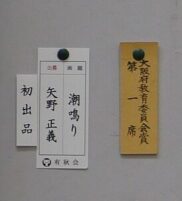 大阪府教育委員会賞
第一席
潮鳴り
矢野 正義
有秋会
初出品